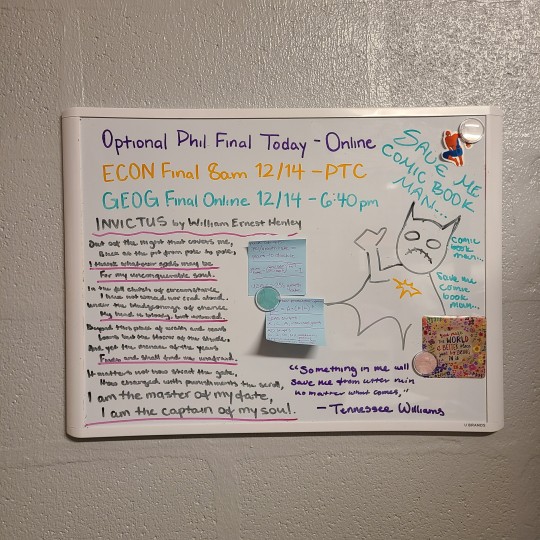 Optional Phil Final Today - Online
ECON Final 8am 12/14 - PTC
GEOG Final Online 12/14 - 6:40pm
INVICTUS by William Ernest Henley
Out of the night that covers me,
Black as the pit from pole to pole,
I thank whatever gods may be
For my unconquerable soul.
In the fell clutch of circumstance
I have not winced nor cried aloud.
Under the bludgeonings of chance
My head is bloody, but unbowed.
Beyond this place of wrath and tears
Looms but the horror of the shade,
And yet the menace of the years
Finds and shall find me unafraid.
It matters not how strait the gate,
How charged with punishments the scroll,
I am the master of my fate,
I am the captain of my soul.
SAVE ME
COMIC BOOK
MAN...
comic
book
man...
save me
comic
book
man...
THE WORLD
IS BETTER
"Something in me will
save me from utter ruin
no matter what comes,"
- Tennessee Williams
U BRANDS